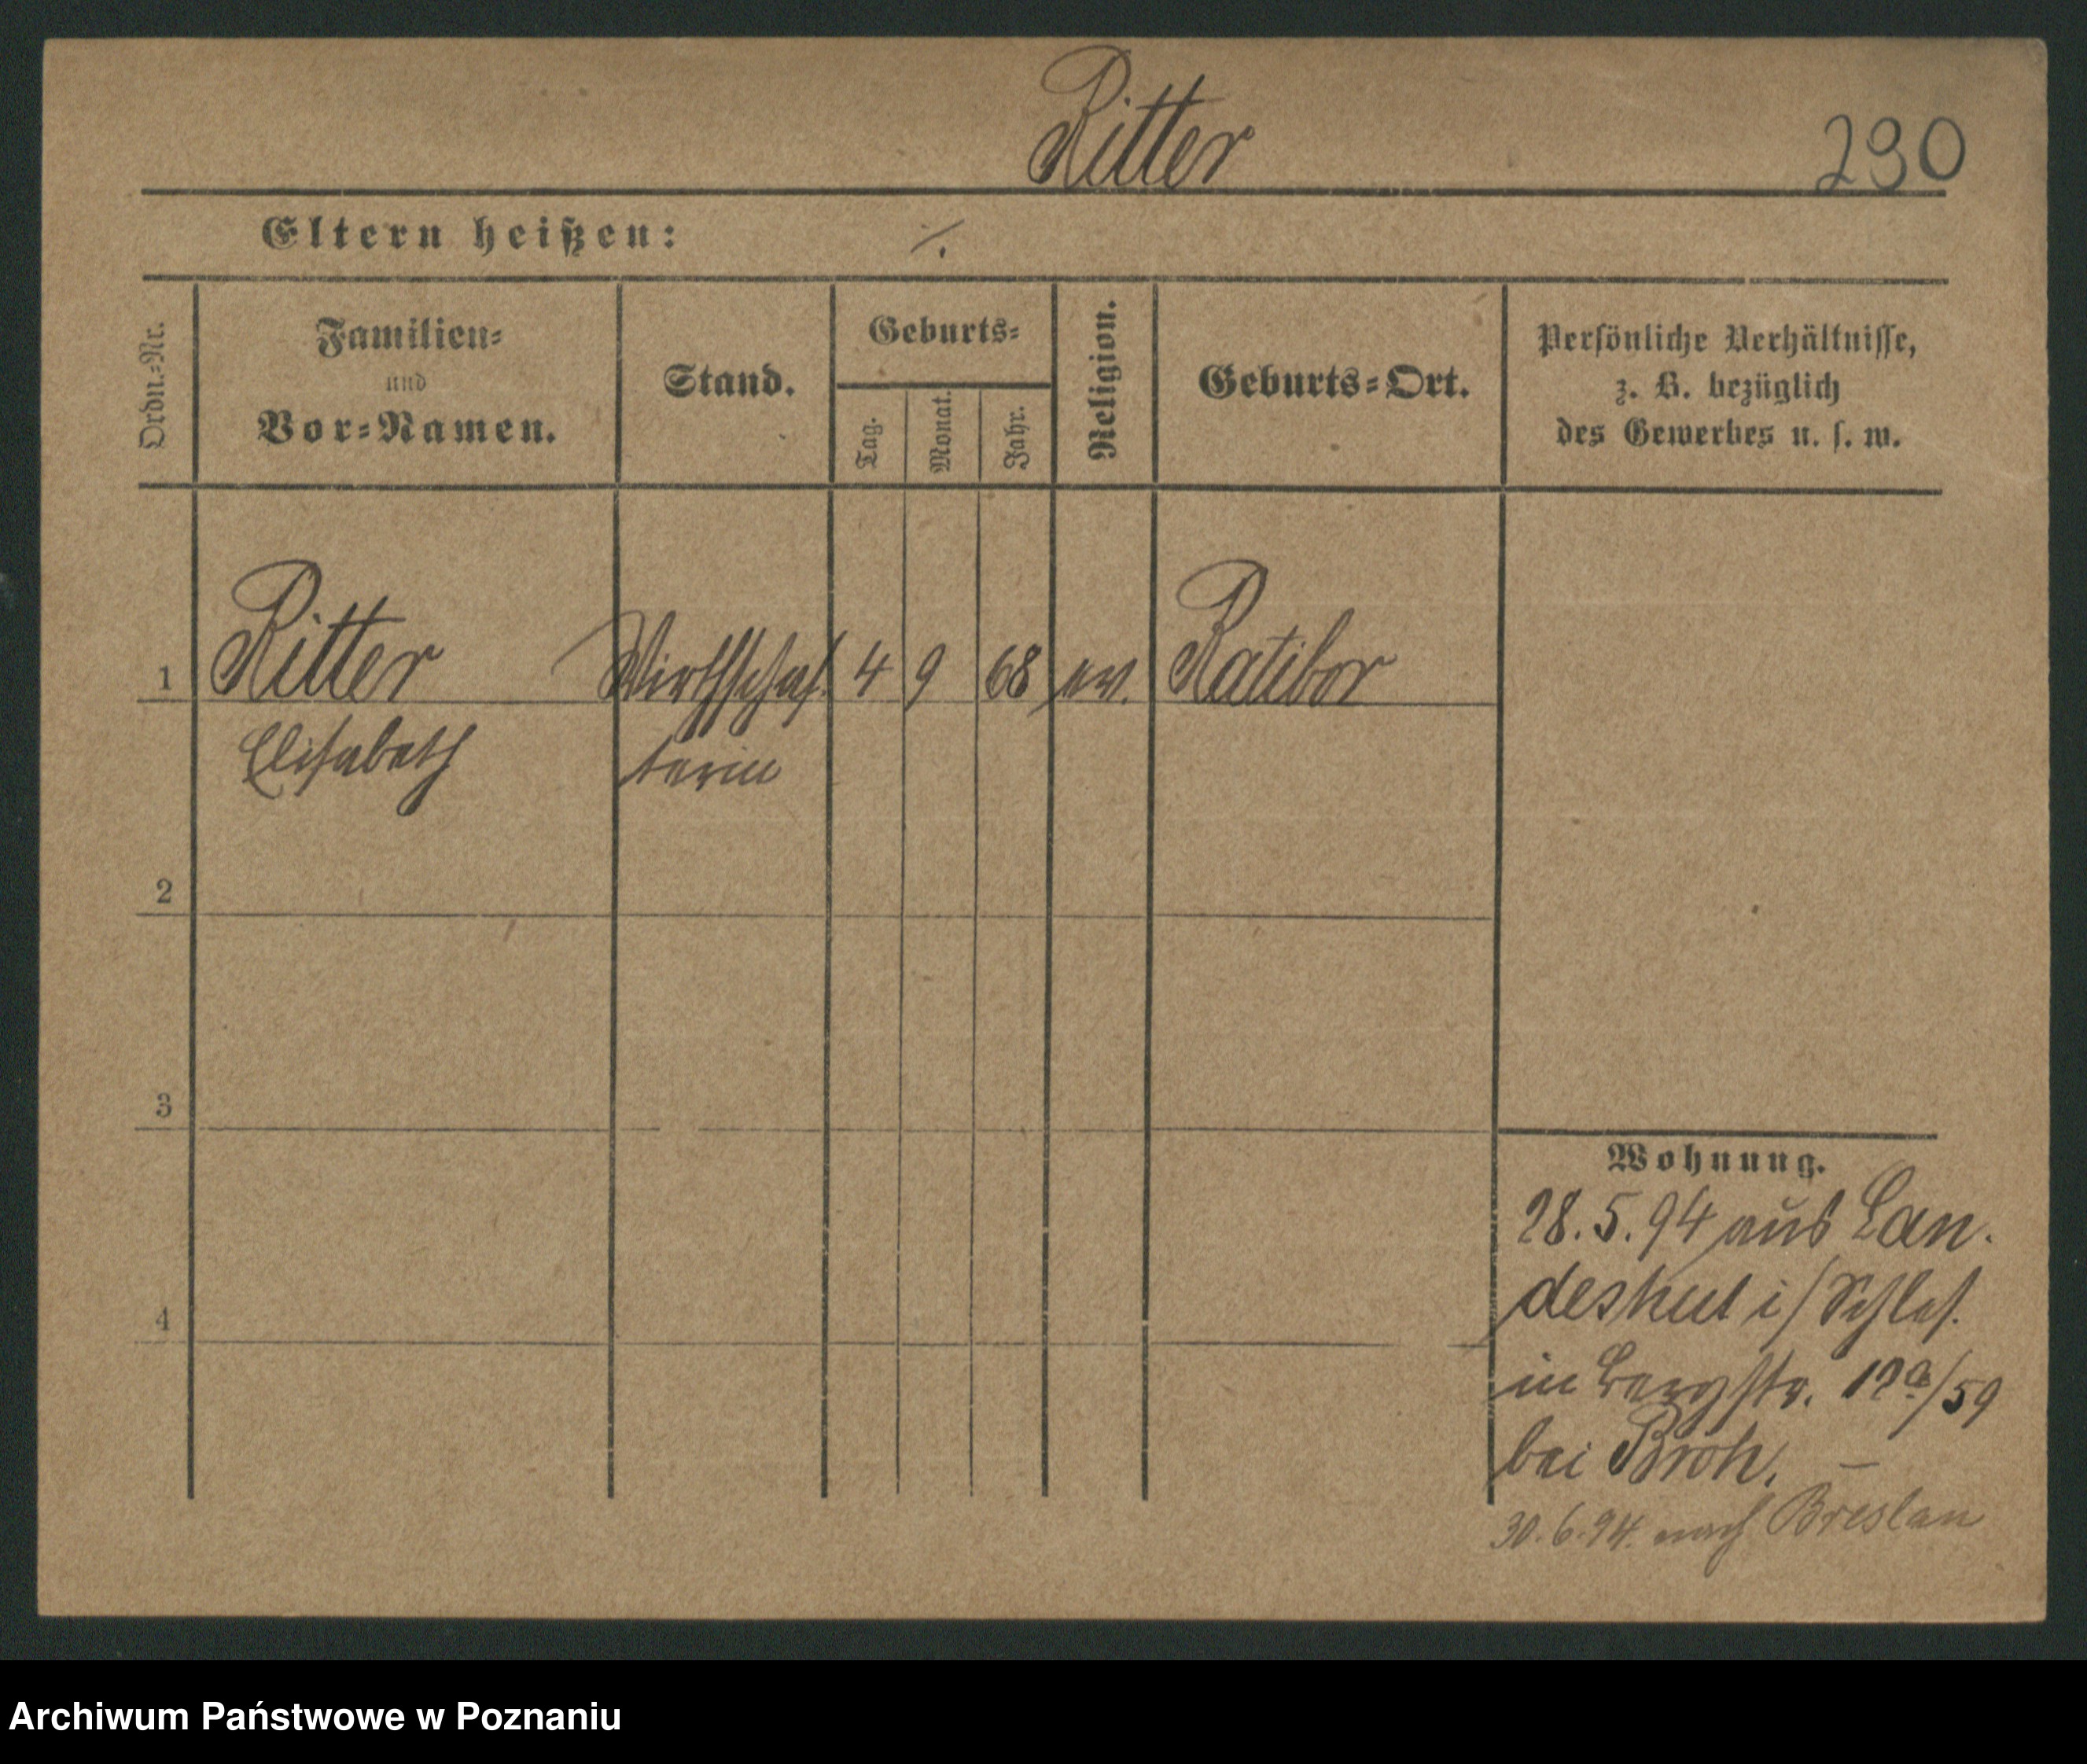 Ritter
290
Eltern heißen: ⁒
Ordn.-Nr.
Familien-
und
Vor-Namen.
Stand.
Geburts-
Tag.
Monat.
Jahr.
Religion.
Geburts-Ort.
Persönliche Verhältnisse,
z. B. bezüglich
des Gewerbes u. s. w.
1 Ritter Wirthschaf- 4 9 68 ev. Ratibor
Elisabeth terin
2
3
4
Wohnung.
28. 5. 94 aus Lan-
deshut i/Schles.
in Bergstr. 12a/59
bei Broh. –
30. 6. 94. nach Breslau
Archiwum Państwowe w Poznaniu